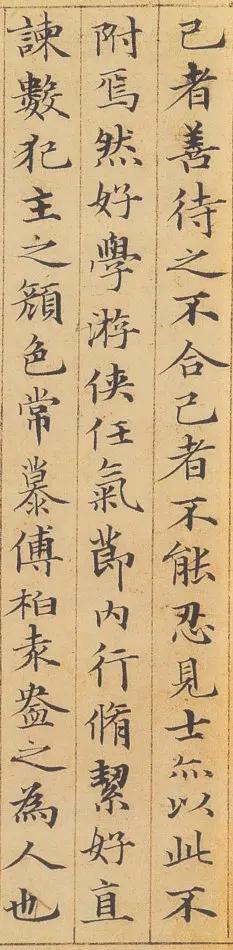 己者善待之不合己者不能忍見士亦以此不
附焉然好學游俠任氣節內行脩絜好直
諫數犯主之顔色常慕傅柏袁盎之為人也